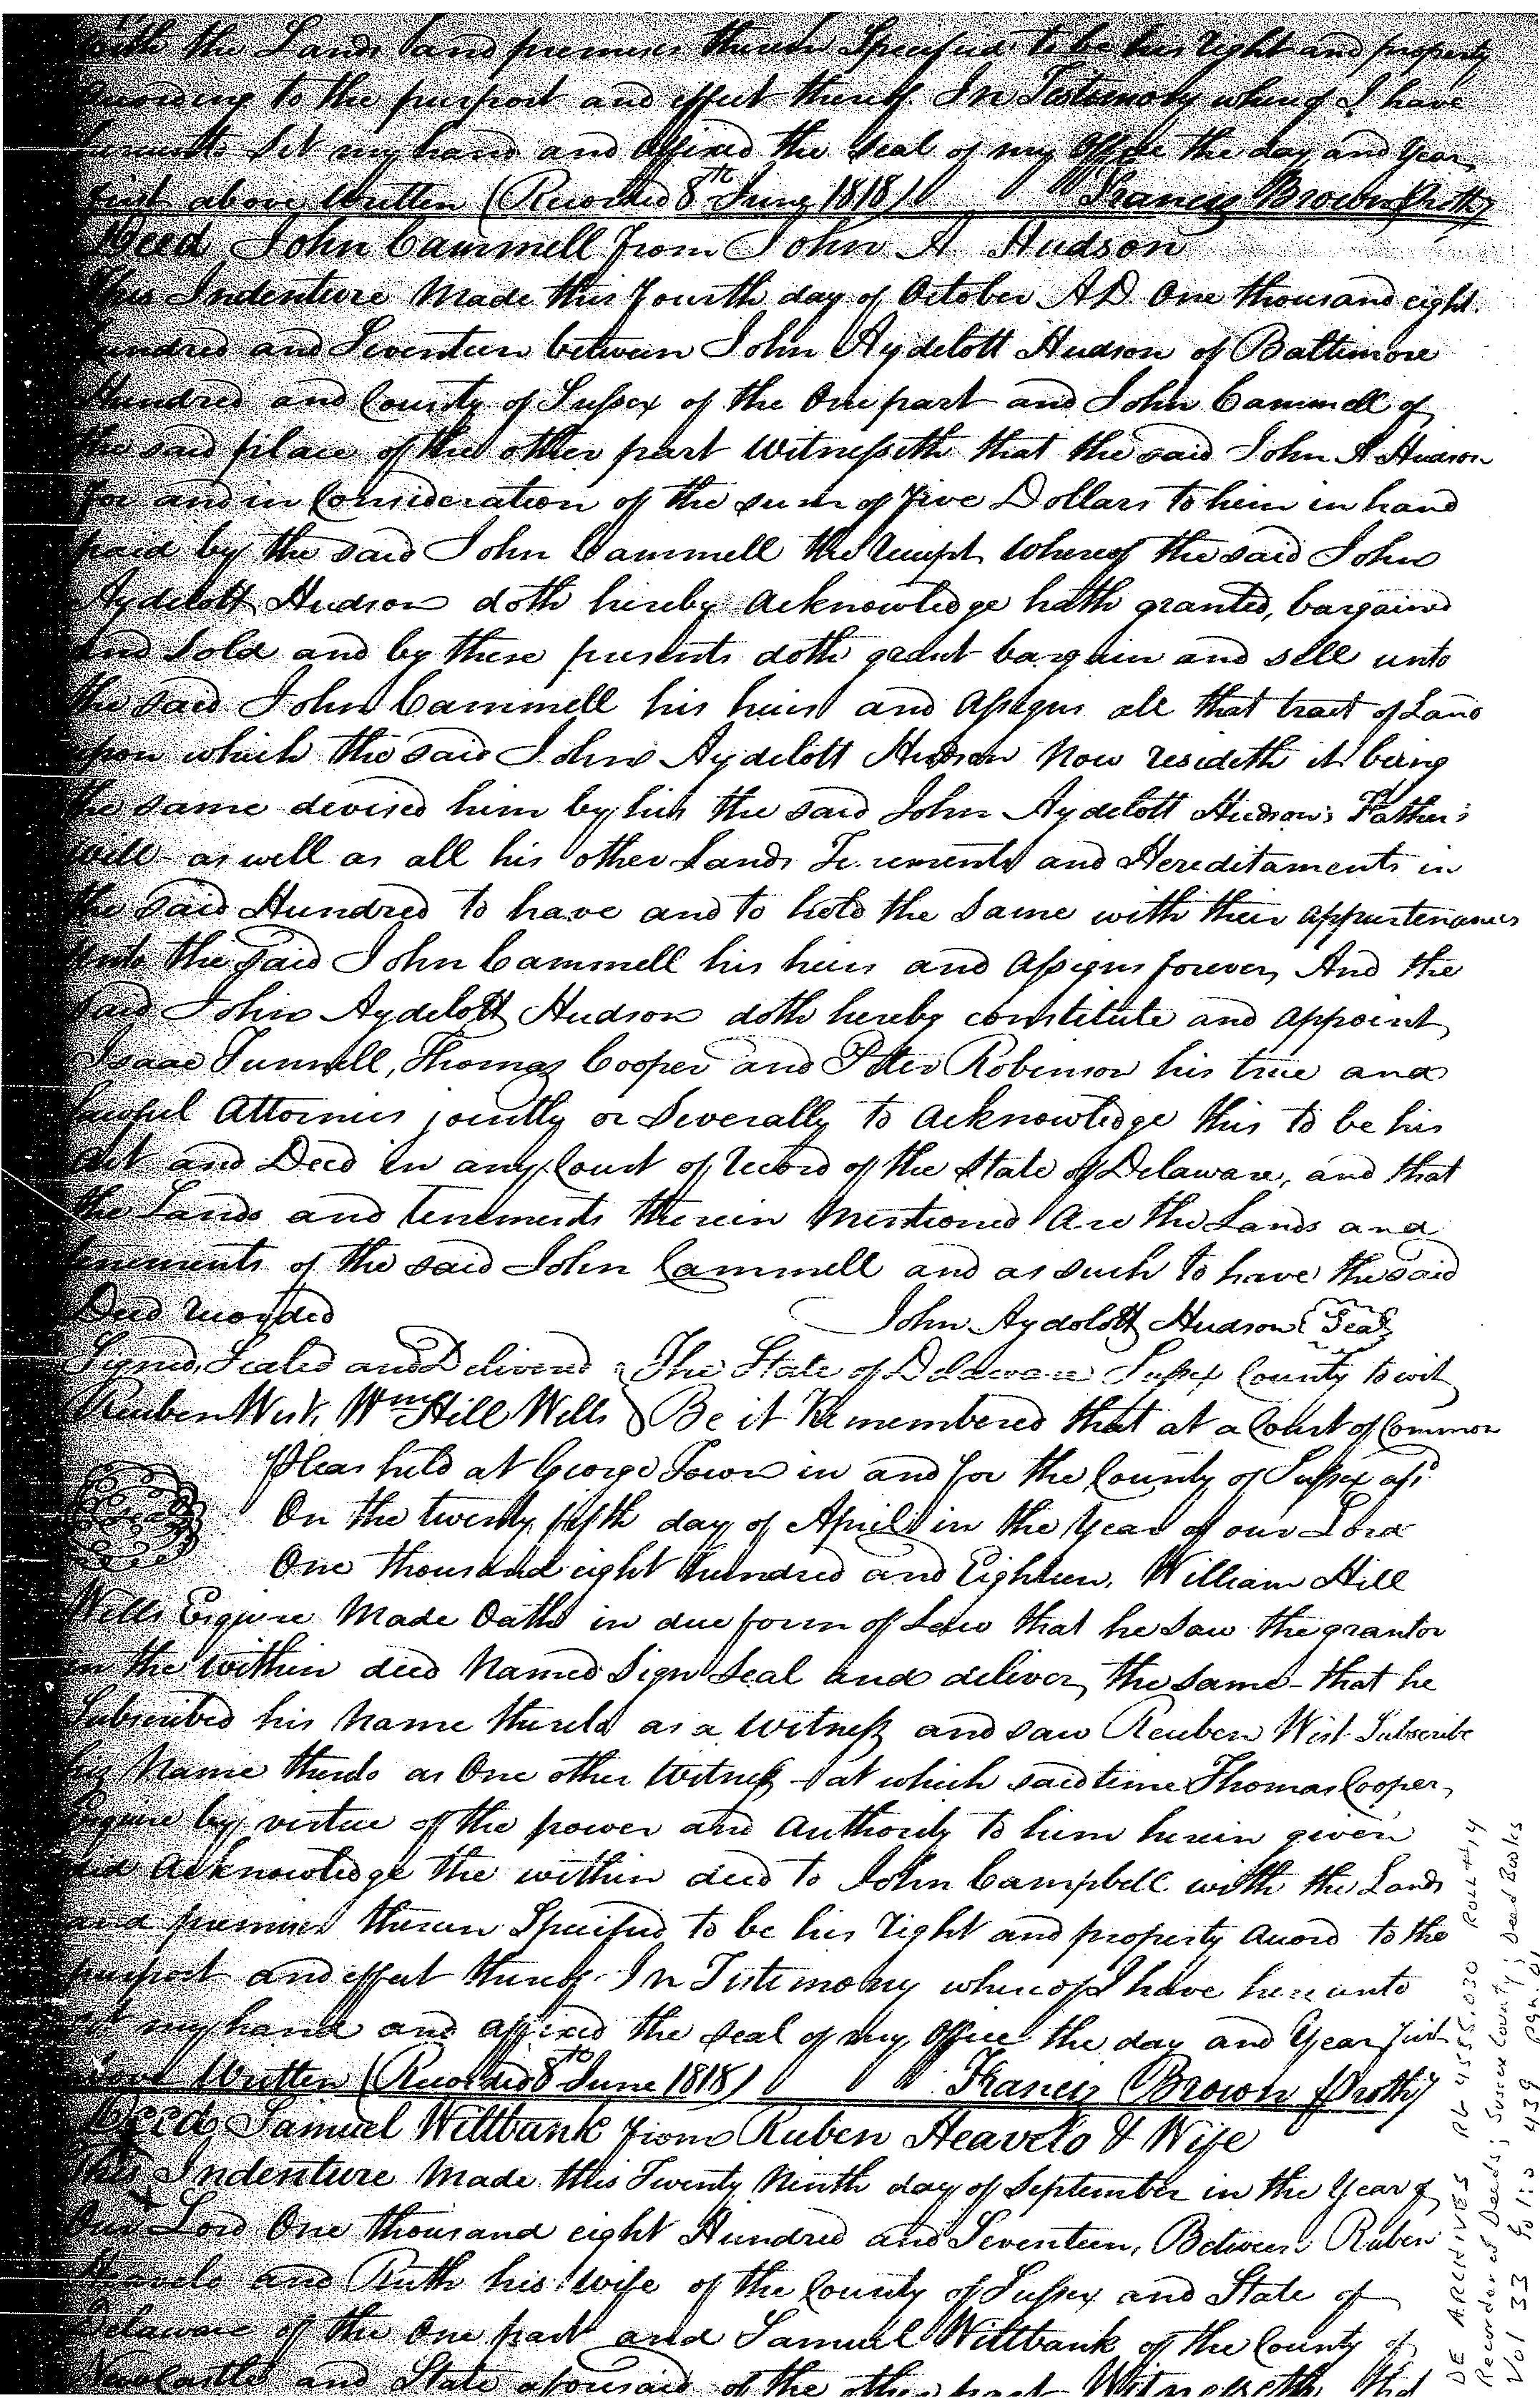 with the Lands and premises therein Specified to be his right and property
according to the purport and effect thereof. In Testimony whereof I have
hereunto Set my hand and affixed the Seal of my Office the day and Year
first above Written (Recorded 8th June 1818) Francis Brown Prothy
Deed John Cammell from John A Hudson
This Indenture Made this Fourth day of October AD One thousand eight
hundred and Seventeen between John Aydelott Hudson of Baltimore
Hundred and County of Sussex of the One part and John Cammell of
the said place of the other part Witnesseth that the said John A Hudson
for and in Consideration of the sum of Five Dollars to him in hand
paid by the said John Cammell the receipt whereof the said John
Aydelott Hudson doth hereby acknowledge hath granted, bargained
and Sold and by these presents doth grant bargain and sell unto
the said John Cammell his heirs and assigns all that tract of Land
upon which the said John Aydelott Hudson Now resideth it being
the same devised him by his the said John Aydelott Hudson's Father's
Will as well as all his other Lands Tenements and Hereditaments in
the said Hundred to have and to hold the Same with their appurtenances
Unto the said John Cammell his heirs and assigns forever, And the
said John Aydelott Hudson doth hereby constitute and appoint
Isaac Tunnell, Thomas Cooper and Peter Robinson his true and
lawful Attornies jointly or Severally to acknowledge this to be his
act and Deed in any Court of record of the State of Delaware, and that
the Lands and tenements therein Mentioned Are the Lands and
tenements of the said John Cammell and as such to have the said
Deed recorded John Aydolott Hudson Seal
Signed, Sealed and Delivered The State of Delaware Sussex County to wit
Reuben West, Wm Hill Wells Be it Remembered that at a Court of Common
Pleas held at George Town in and for the County of Sussex afsd
Seal On the twenty fifth day of April in the Year of our Lord
One thousand eight hundred and Eighteen, William Hill
Wells Esquire Made Oath in due form of Law that he Saw the grantor
in the within deed Named Sign Seal and deliver the same - that he
Subscribed his Name thereto as a Witness and saw Reuben West Subscribe
his Name thereto as One other Witness - at which said time Thomas Cooper
Esquire by virtue of the power and Authority to him herein given
did acknowledge the within deed to John Campbell with the Lands
and premises therein Specified to be his right and property accord to the
purport and effect thereof. In Testimony whereof I have hereunto
set my hand and affixed the seal of my Office the day and Year first
above Written (Recorded 8th June 1818) Francis Brown Prothy
Deed Samuel Wiltbank from Ruben Heavelo & Wife
This Indenture Made this Twenty Ninth day of September in the Year of
Our Lord One thousand eight Hundred and Seventeen, Between Ruben
Heavelo and Ruth his Wife of the County of Sussex and State of
Delaware of the One part and Samuel Wiltbank of the County of
New Castle and State aforesaid of the other part Witnesseth That
DE ARCHIVES RG 4555.030 ROLL #14
Recorder of Deeds; Sussex County; Deed Books
Vol 33 folio 439